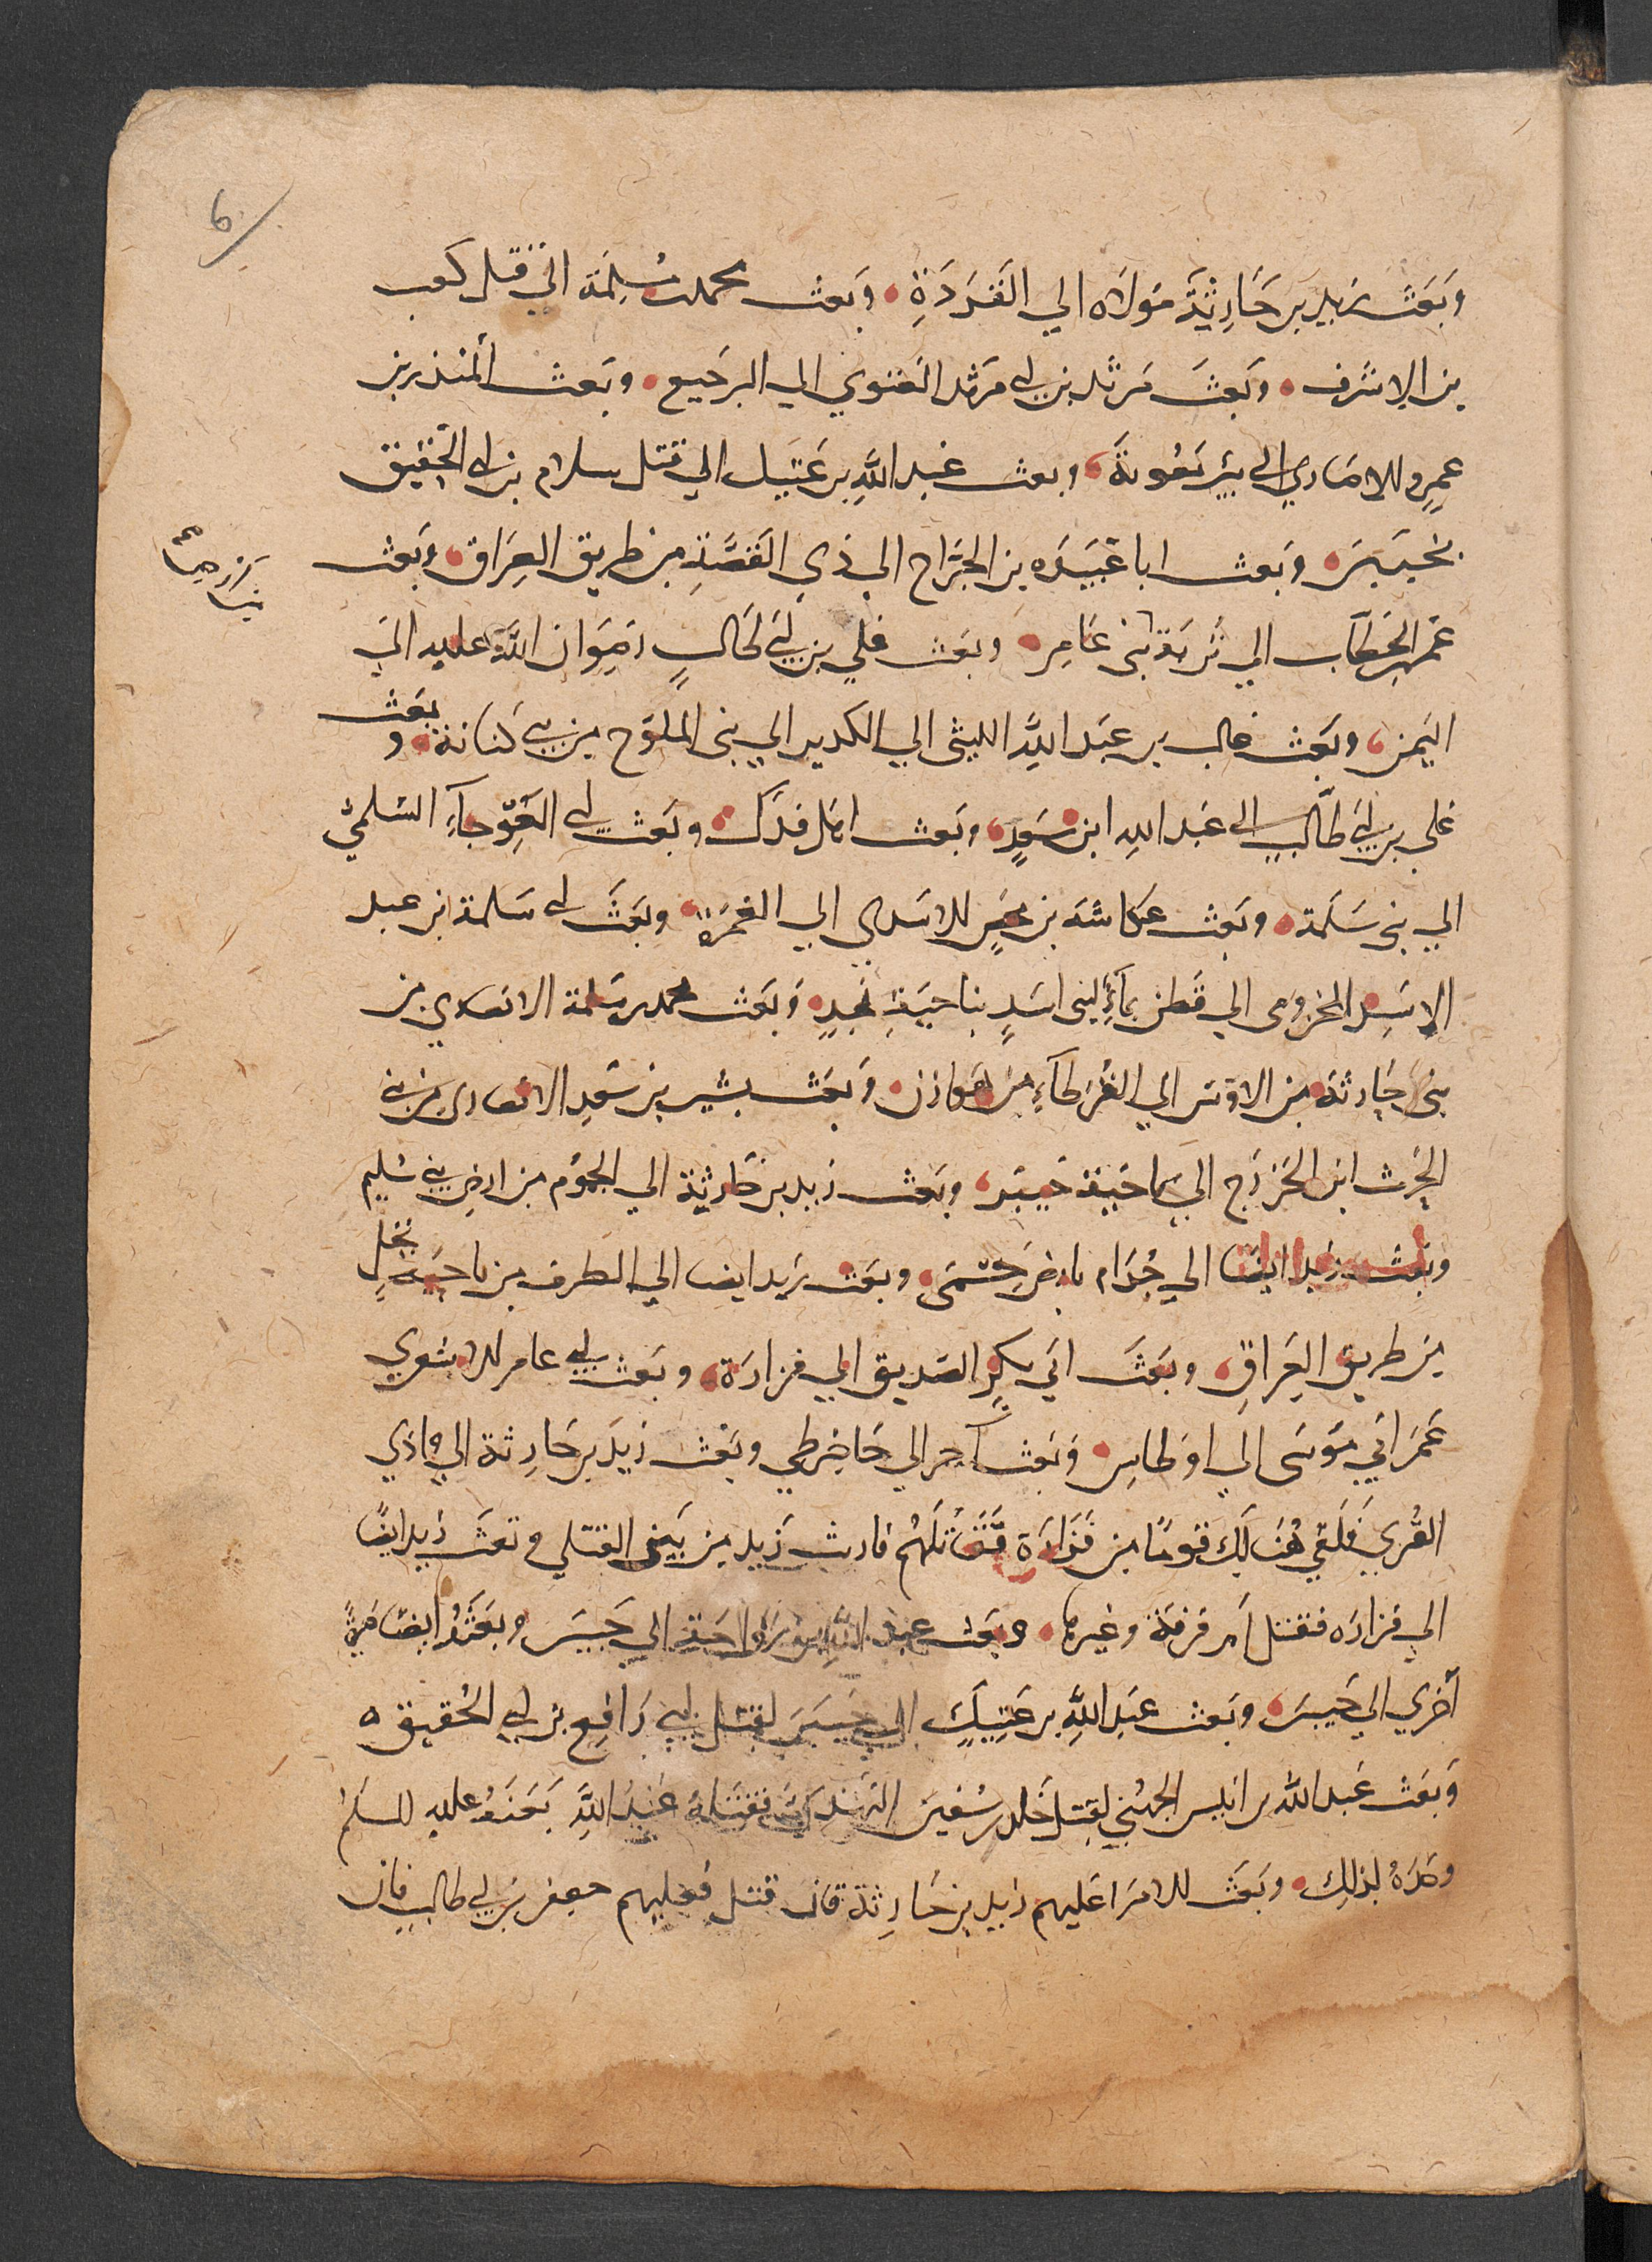 6
وَبَعَثَ زيد بن حَارِثَةَ مَولَاه الي القَرَدَةِ • وبعث محمد بن مَسْلَمَة الي قتل كعب
بن الاشرف • وبَعثَ مَرثد بن ابي مَرثد الغنوي الي الرجيع • وبَعث المنذر بن
عمرٍو الانصاري الي بئر مَعُونَةَ، وبعث عبد اللَّهِ بن عَتِيك الي قتل سلام بن ابي الحُقَيق
بخيبرَ، وبَعث ابا عُبَيدَه بن الجَرَّاح الي ذي القَصَّةِ من طريق العِرَاق، وبَعث
عُمر بن الخَطَّاب الي تُرَبَة بَني عَامِر • وبعَث علي بن ابي طَالبٍ رِضوَان اللَّهِ عليه الي
اليَمَن، وبَعَث غالب بن عبَد اللَّهِ الليثى الي الكديد الي بنى الملَوَّح من بني كنانة، و بعَث
علي بن ابي طَالب الي عَبد اللهِ ابن سَعدٍ، وبَعث اهل فَدَك، وبعَث ابن ابي العَوجآءِ السُلميّ
الي بني سَلَمة، وبَعث عكاشَه بن محصن الاسدي الي الغَمرَةِ، وبَعَثَ ابي سَلمة بن عبد
الاسد المخزومى الي قَطن مآءٍ لبنى اسَدٍ بناحيَةِ نجدٍ، وبَعَث محمد بن مسلمة الانصاري من
بنى حَارثة من الاوس الي القُرَطآءِ من هوازن، وبَعث بشير بن سَعدِ الانصارى من بني
الحَرث ابن الخَزرَج الي ناحية خيبَر، وبعَث زيد بن حَارثة الي الجَموم من ارض بني سُليم
وبَعث زيد ايضًا الي جُذَام بارض حِسمَى، وبعَث زيد ايضا الي الطرف من ناحيَة نخلٍ
مِن طريق العِراق، وبَعَثَ ابي بكرٍ الصديق الي فزارَة، وبَعث ابي عامر الاشعري
عَمّ ابي مُوسَى الي اوطاسِ، وبَعث اخر الي حَاضر طيّ وبَعَث زيد بن حَارِثة الي وادي
القُري فَلَقِي هُنَالِكَ قومًا مِن فَزَارَة فَقَاتَلَهُم فارتث زيد مِن بَين القتلي وبَعَث زيد ايضًا
الي فزارَه فقتل ام قرفة وغيرها، وبَعث عبد اللَّهِ بن رَوَاحَة الي خيبَرَ، وبَعَثَهُ ايضًا مَرةً
أخري الي خَيبَر، وبَعث عَبد اللَّهِ بن عَتِيكٍ الي خيبَر لقتل ابي رَافِع بن ابي الحُقيق ه
وَبعَث عَبد اللّه بن انيس الجُهَني لقتل خَالد بن سُفين الهَذلي فَقتَلهُ عَبدُ اللَّهِ بَعثَهُ عليه السلم
وحدَهُ لذلِكَ، وبَعَث الامرَا عَليهم زيد بن حَارِثة فان قتل فعليهم جعفر بن ابي طالب فان